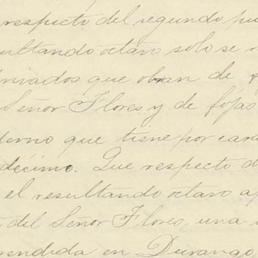 respecto del segundo pu
sultando octavo solo se r
privados que obran de
Señor Flores y de fojas
derno que tiene por cará
décimo. Que respecto d
el resultando octavo ap
del Señor Flores, una
rendida en Durango